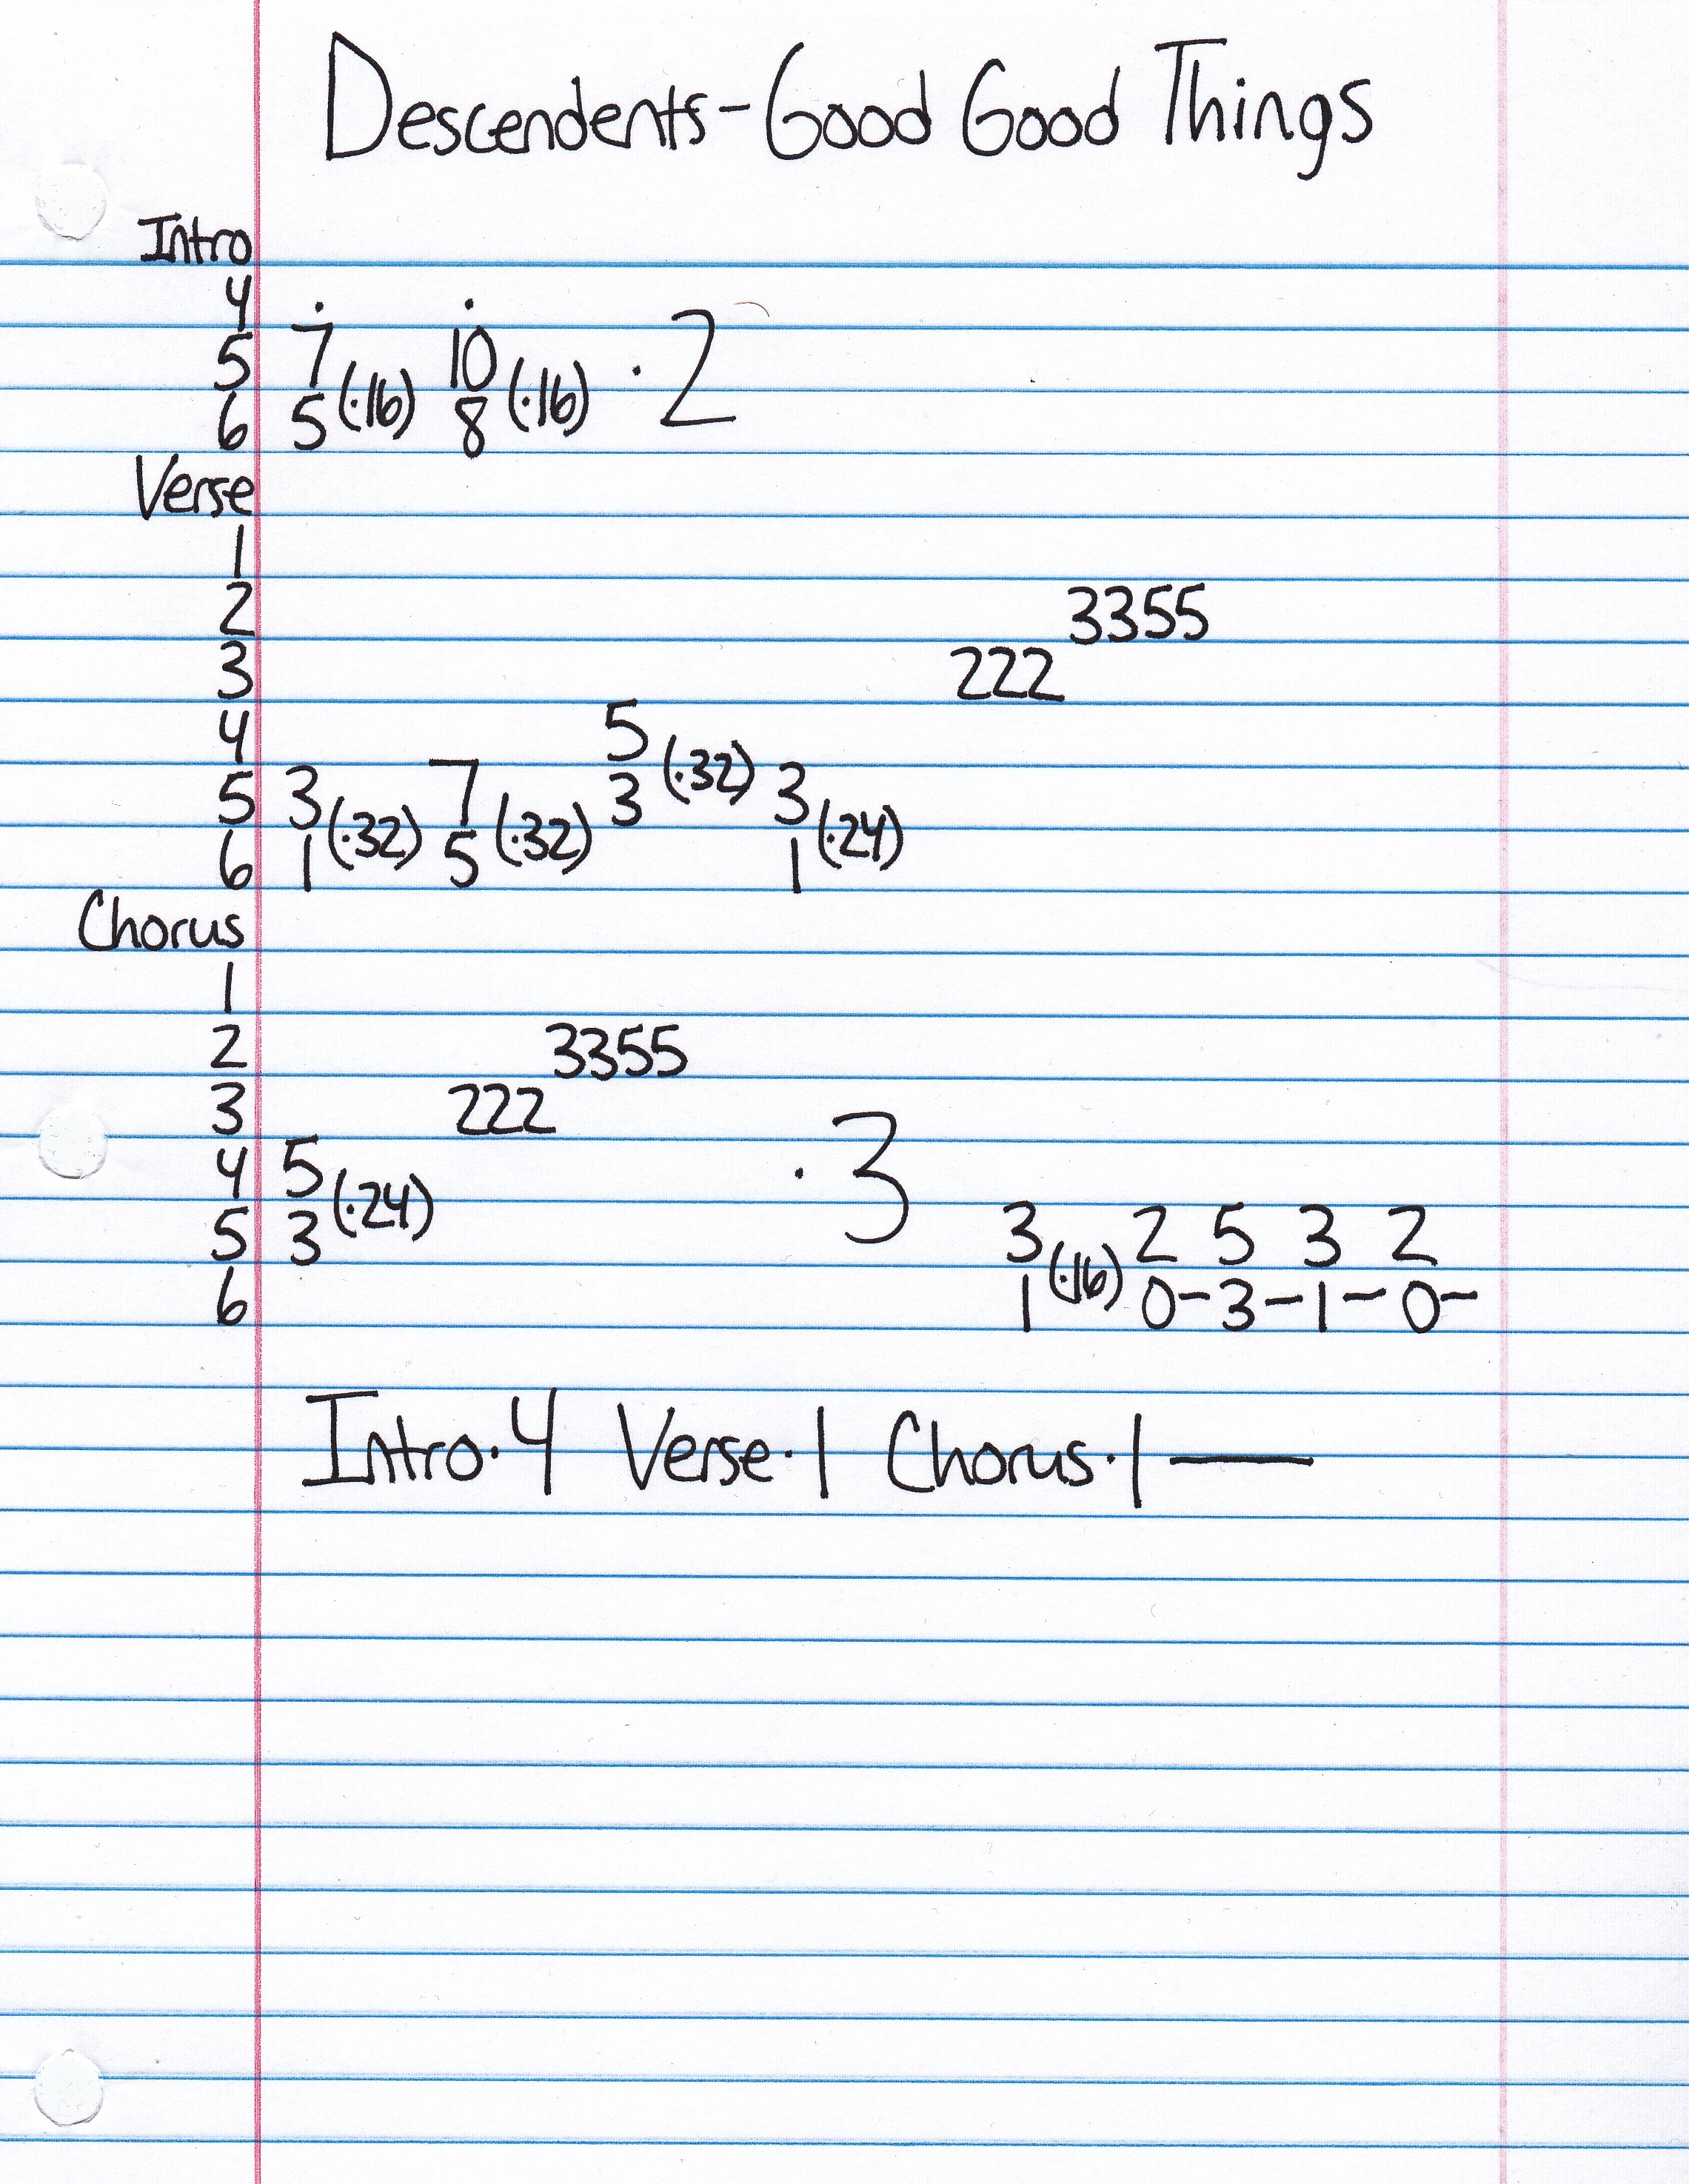 Descendents - Good Good Things
Intro
4
5 7 (·16) 10 (·16) · 2
6 5 8
Verse
1
2 3355
3 222
4 5 (·32)
5 3 (·32) 7 (·32) 3 3 (·24)
6 1 5 1
Chorus
1
2 3355
3 222
4 5 (·24) · 3
5 3 3 (·16) 2 5 3 2
6 1 0- 3- 1- 0-
Intro·4 Verse·1 Chorus·1 —